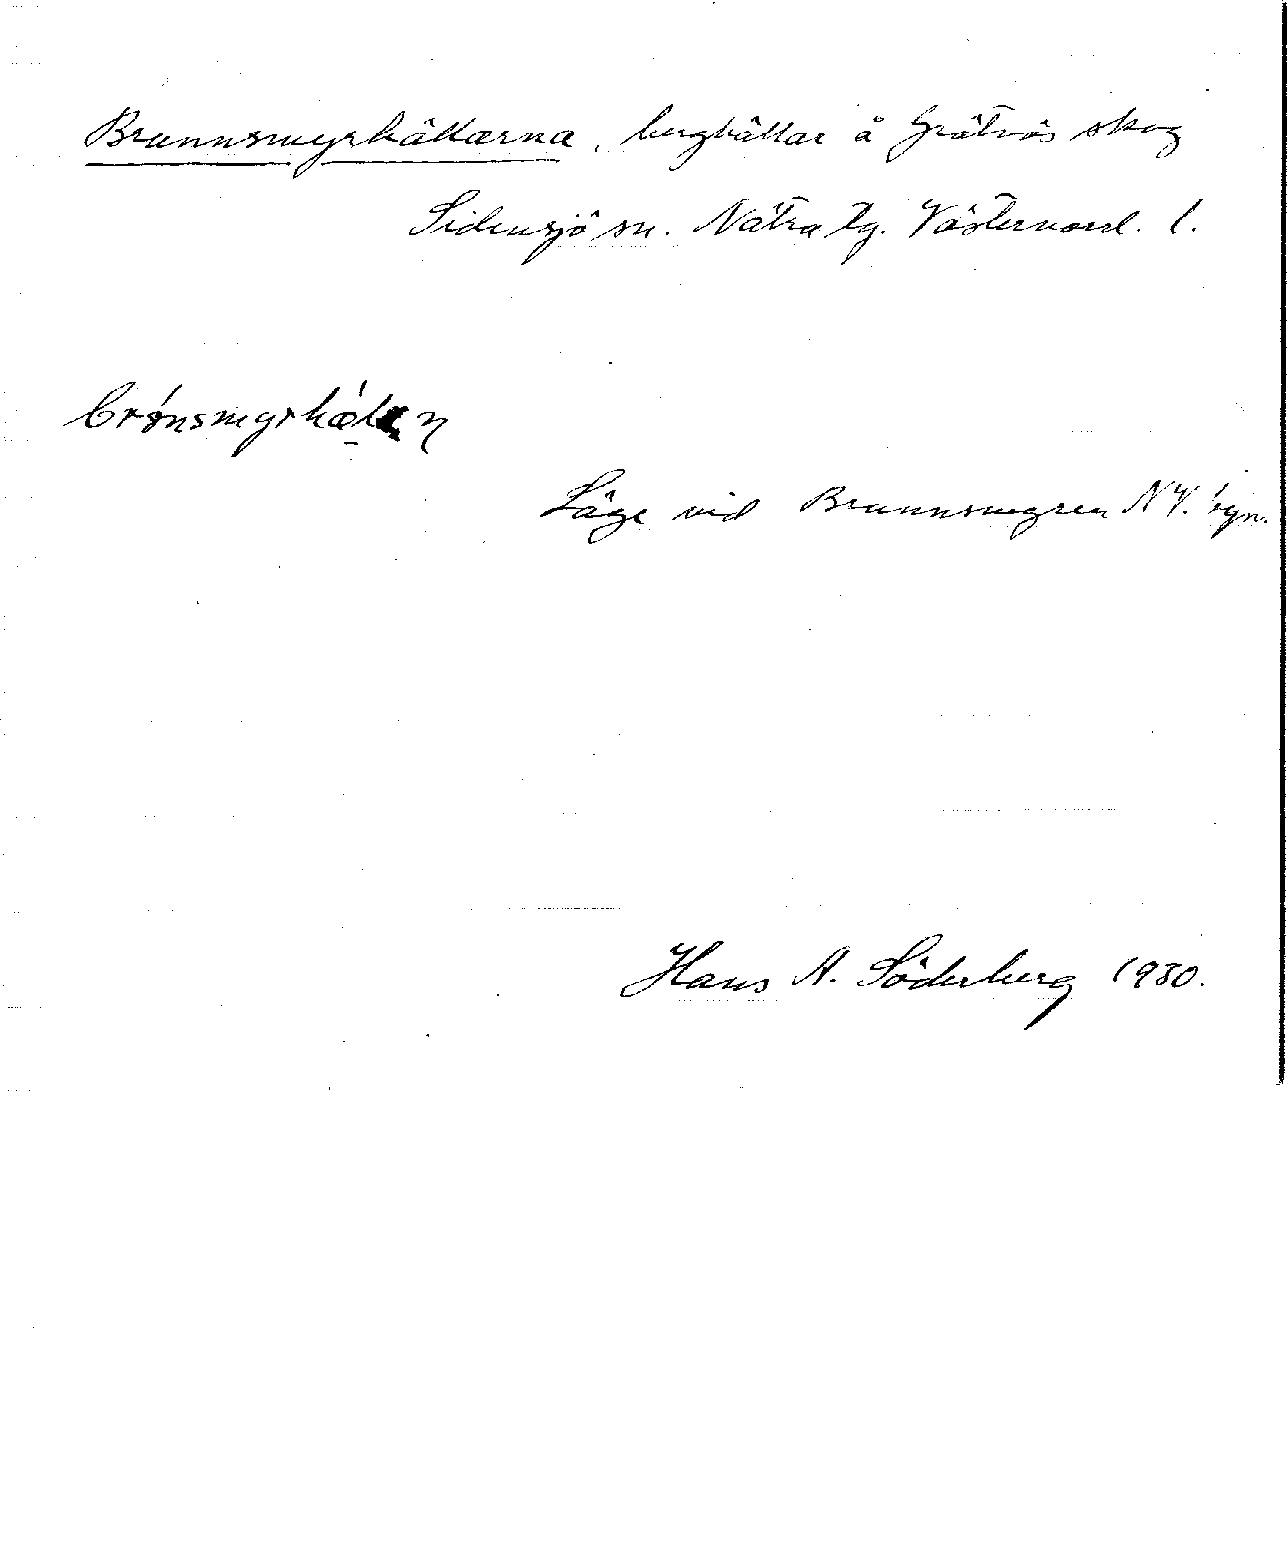 Brunnsmyrhällarna, berghällar å Grätnäs skog
Sidensjö sn. Nätra tg. Västernorrl. l.
Läge vid Brunnsmyren NV. byn.
Hans A. Söderberg 1930.